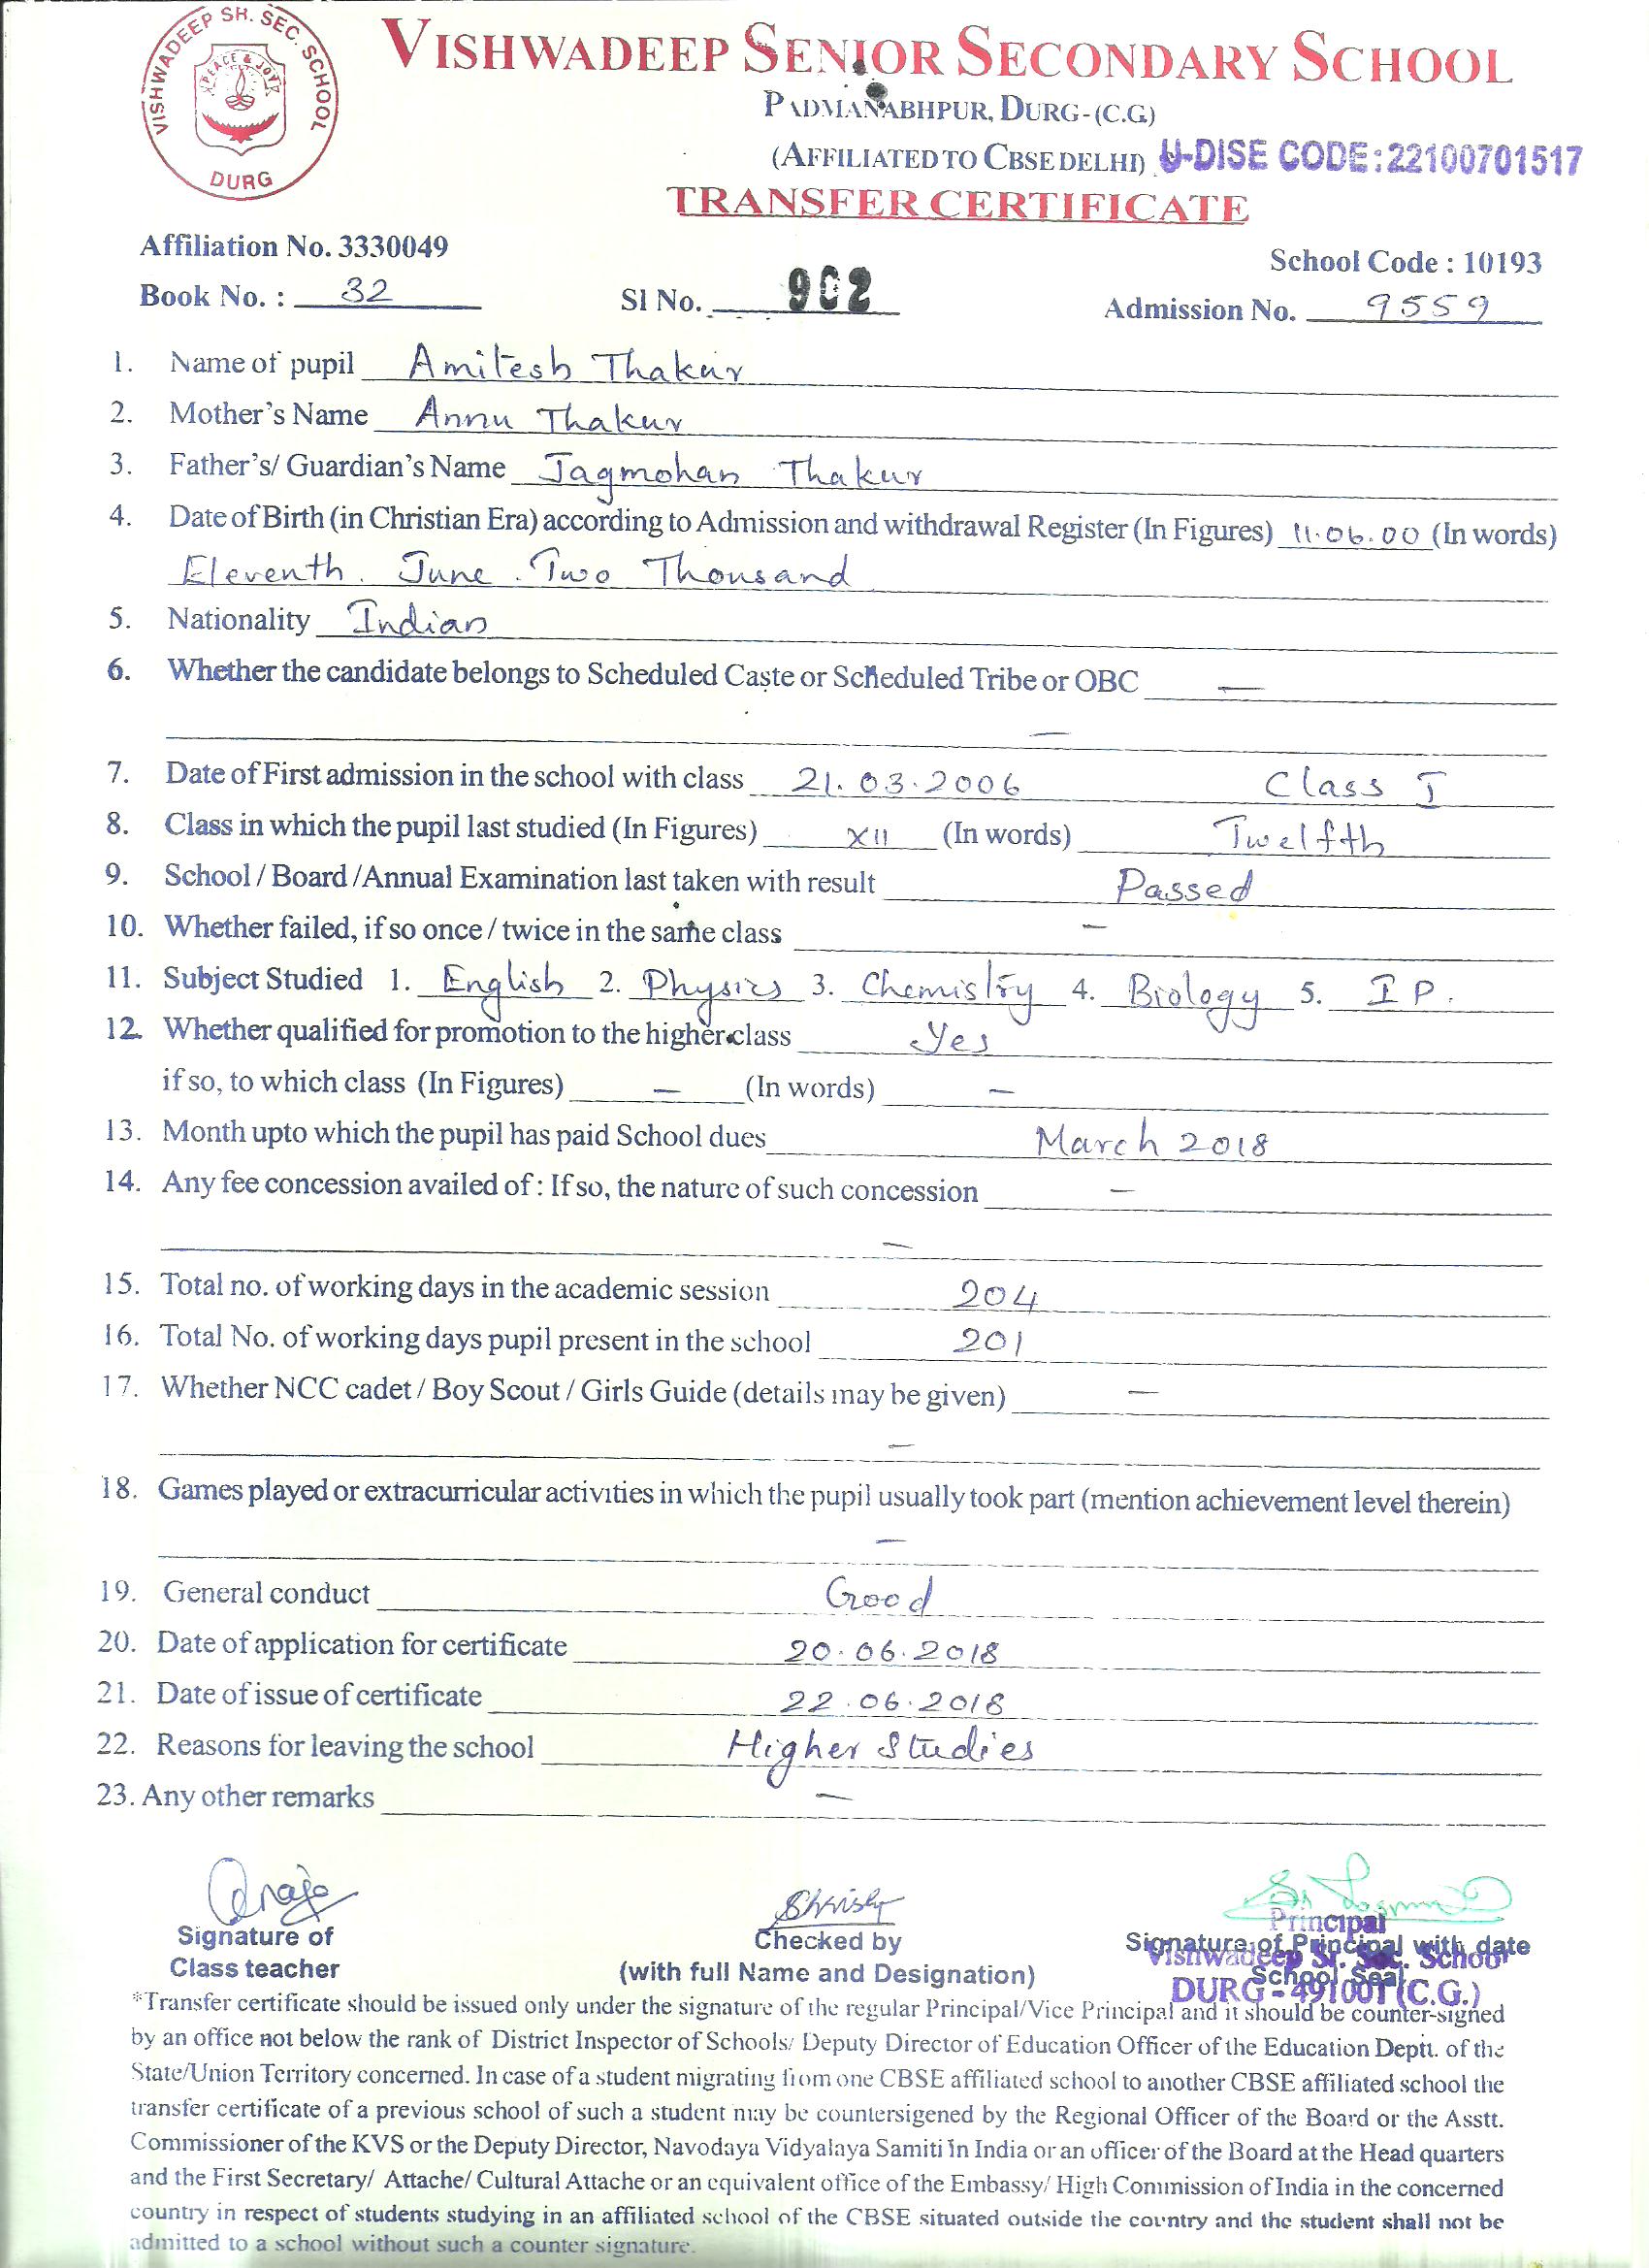 VISHWADEEP SR. SEC. SCHOOL
PEACE & JOY
DURG
VISHWADEEP SENIOR SECONDARY SCHOOL
PADMANABHPUR, DURG-(C.G.)
(AFFILIATED TO CBSE DELHI) U-DISE CODE:22100701517
TRANSFER CERTIFICATE
Affiliation No. 3330049
School Code : 10193
Book No. : 32 Sl No. 902 Admission No. 9559
1. Name of pupil Amitesh Thakur
2. Mother's Name Annu Thakur
3. Father's/ Guardian's Name Jagmohan Thakur
4. Date of Birth (in Christian Era) according to Admission and withdrawal Register (In Figures) 11.06.00 (In words)
Eleventh. June. Two Thousand
5. Nationality Indian
6. Whether the candidate belongs to Scheduled Caste or Scheduled Tribe or OBC —
—
7. Date of First admission in the school with class 21.03.2006 Class I
8. Class in which the pupil last studied (In Figures) XII (In words) Twelfth
9. School / Board /Annual Examination last taken with result Passed
10. Whether failed, if so once / twice in the same class —
11. Subject Studied 1. English 2. Physics 3. Chemistry 4. Biology 5. I P.
12. Whether qualified for promotion to the higher class Yes
if so, to which class (In Figures) — (In words) —
13. Month upto which the pupil has paid School dues March 2018
14. Any fee concession availed of : If so, the nature of such concession —
—
15. Total no. of working days in the academic session 204
16. Total No. of working days pupil present in the school 201
17. Whether NCC cadet / Boy Scout / Girls Guide (details may be given) —
—
18. Games played or extracurricular activities in which the pupil usually took part (mention achievement level therein)
—
19. General conduct Good
20. Date of application for certificate 20.06.2018
21. Date of issue of certificate 22.06.2018
22. Reasons for leaving the school Higher Studies
23. Any other remarks —
Principal
Signature of Checked by Signature of Principal with date
Vishwadeep Sr. Sec. School
Class teacher (with full Name and Designation) School Seal
DURG - 491001 (C.G.)
*Transfer certificate should be issued only under the signature of the regular Principal/Vice Principal and it should be counter-signed
by an office not below the rank of District Inspector of Schools/ Deputy Director of Education Officer of the Education Deptt. of the
State/Union Territory concerned. In case of a student migrating from one CBSE affiliated school to another CBSE affiliated school the
transfer certificate of a previous school of such a student may be countersigened by the Regional Officer of the Board or the Asstt.
Commissioner of the KVS or the Deputy Director, Navodaya Vidyalaya Samiti in India or an officer of the Board at the Head quarters
and the First Secretary/ Attache/ Cultural Attache or an equivalent office of the Embassy/ High Commission of India in the concerned
country in respect of students studying in an affiliated school of the CBSE situated outside the country and the student shall not be
admitted to a school without such a counter signature.